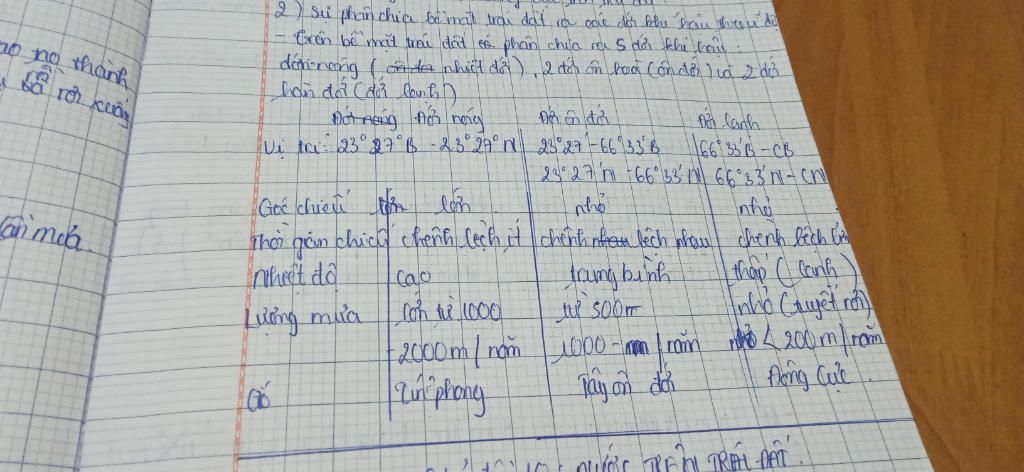 2) Sự phân chia bề mặt trái đất ra các đới khí hậu theo vĩ độ
- trên bề mặt trái đất có phân chia ra 5 đới khí hậu:
đới nóng ( nhiệt đới), 2 đới ôn hoà (ôn đới) và 2 đới
hàn đới (đới lạnh)
Đới nóng Đới nóng Đới ôn đới Đới lạnh
Vị trí: 23°27°B - 23°27°N 23°27' - 66°33'B 66°33'B - CB
23°27'N - 66°33'N 66°33'N - CN
Góc chiếu lớn lớn nhỏ nhỏ
Thời gian chiếu chênh lệch ít chênh lệch nhau chênh lệch lớn
nhiệt độ cao trung bình thấp (lạnh)
Lượng mưa lớn từ 1000 từ 500m nhỏ (tuyết rơi)
- 2000m/năm 1000 - /năm < 200m/năm
Gió Tín phong Tây ôn đới Đông Cực.
NƯỚC TRÊN TRÁI ĐẤT.
no nọ thành
rồi rơi xuống
mưa